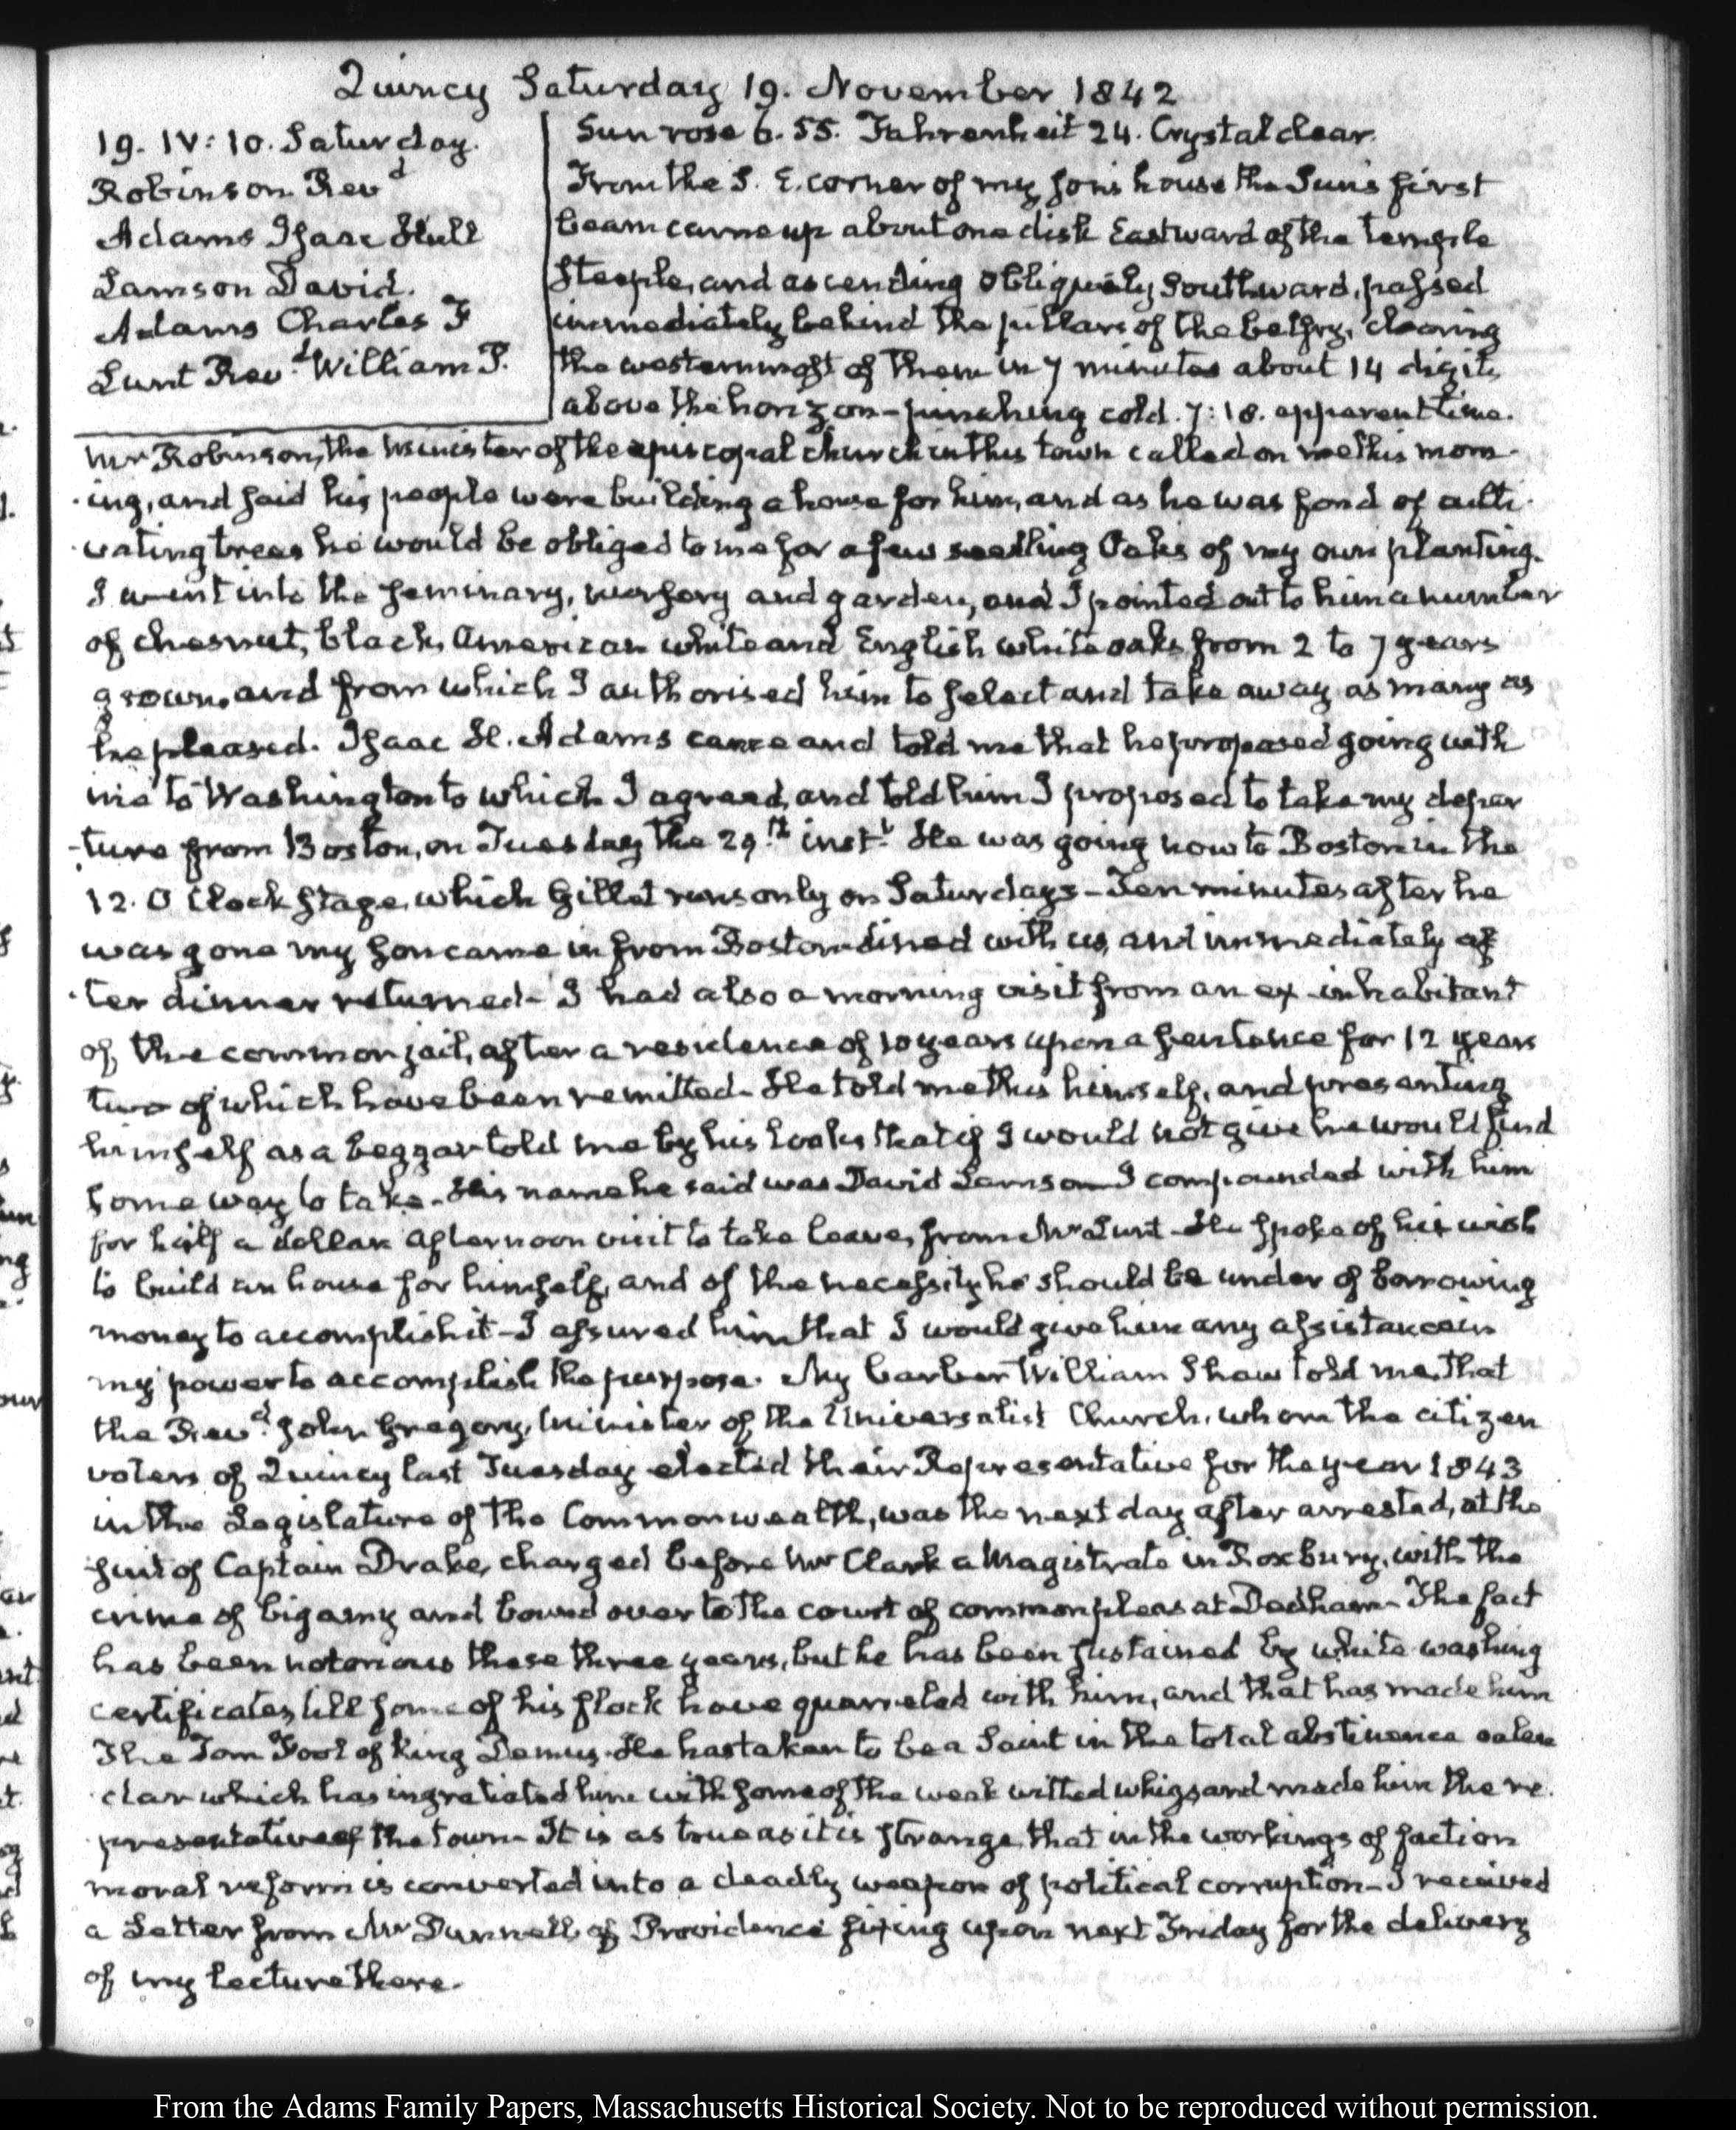 Quincy Saturday 19. November 1842
19. IV: 10. Saturday.
Robinson Revd
Adams Isaac Hull
Lamson David.
Adams Charles F
Lunt Revd William P.
Sun rose 6. 55. Fahrenheit 24. Crystal clear.
From the S. E. corner of my son's house the Sun's first
beam came up about one disk Eastward of the temple
Steeple, and ascending obliquely Southward, passed
immediately behind the pillars of the belfry, clearing
the westernmost of them in 7 minutes about 14 digits
above the horizon - pinching cold. 7:18. apparent time.
Mr Robinson, the Minister of the episcopal church in this town called on me this morn-
-ing, and said his people were building a house for him, and as he was fond of culti-
-vating trees he would be obliged to me for a few seedling Oaks of my own planting.
I went into the seminary, nursery and garden, and I pointed out to him a number
of chesnut, black, American white and English white oaks from 2 to 7 years
grown, and from which I authorised him to select and take away as many as
he pleased. Isaac H. Adams came and told me that he proposed going with
me to Washington to which I agreed, and told him I proposed to take my depar
-ture from Boston, on Tuesday the 29.th inst.t He was going now to Boston in the
12. O Clock stage, which Gillet runs only on Saturdays - Ten minutes after he
was gone my son came in from Boston dined with us, and immediately af
-ter dinner returned - I had also a morning visit from an ex-inhabitant
of the common jail, after a residence of 10 years upon a sentence for 12 years
two of which have been remitted - He told me this himself, and presenting
himself as a beggar told me by his looks that if I would not give he would find
some way to take - His name he said was David Lamson - I compounded with him
for half a dollar afternoon visit to take leave, from Mr Lunt - He spoke of his wish
to build an house for himself, and of the necessity he should be under of borrowing
money to accomplish it - I assured him that I would give him any assistance in
my power to accomplish the purpose. My barber William Shaw told me, that
the Revd. John Gregory, Minister of the Universalist Church, whom the citizen
voters of Quincy last Tuesday elected their Representative for the year 1843
in the Legislature of the Commonwealth, was the next day after arrested, at the
suit of Captain Drake, charged before Mr Clark a Magistrate in Roxbury, with the
crime of bigamy and bound over to the court of common pleas at Dedham - The fact
has been notorious these three years, but he has been sustained by white-washing
certificates, till some of his flock have quarreled with him, and that has made him
The Tom Fool of King Demus. He has taken to be a Saint in the total abstinence calen
-dar which has ingratiated him with some of the weak witted whigs and made him the re-
-presentative of the town - It is as true as it is strange that in the workings of faction
moral reform is converted into a deadly weapon of political corruption - I received
a Letter from Mr Dunnell of Providence fixing upon next Friday for the delivery
of my lecture there.
From the Adams Family Papers, Massachusetts Historical Society. Not to be reproduced without permission.